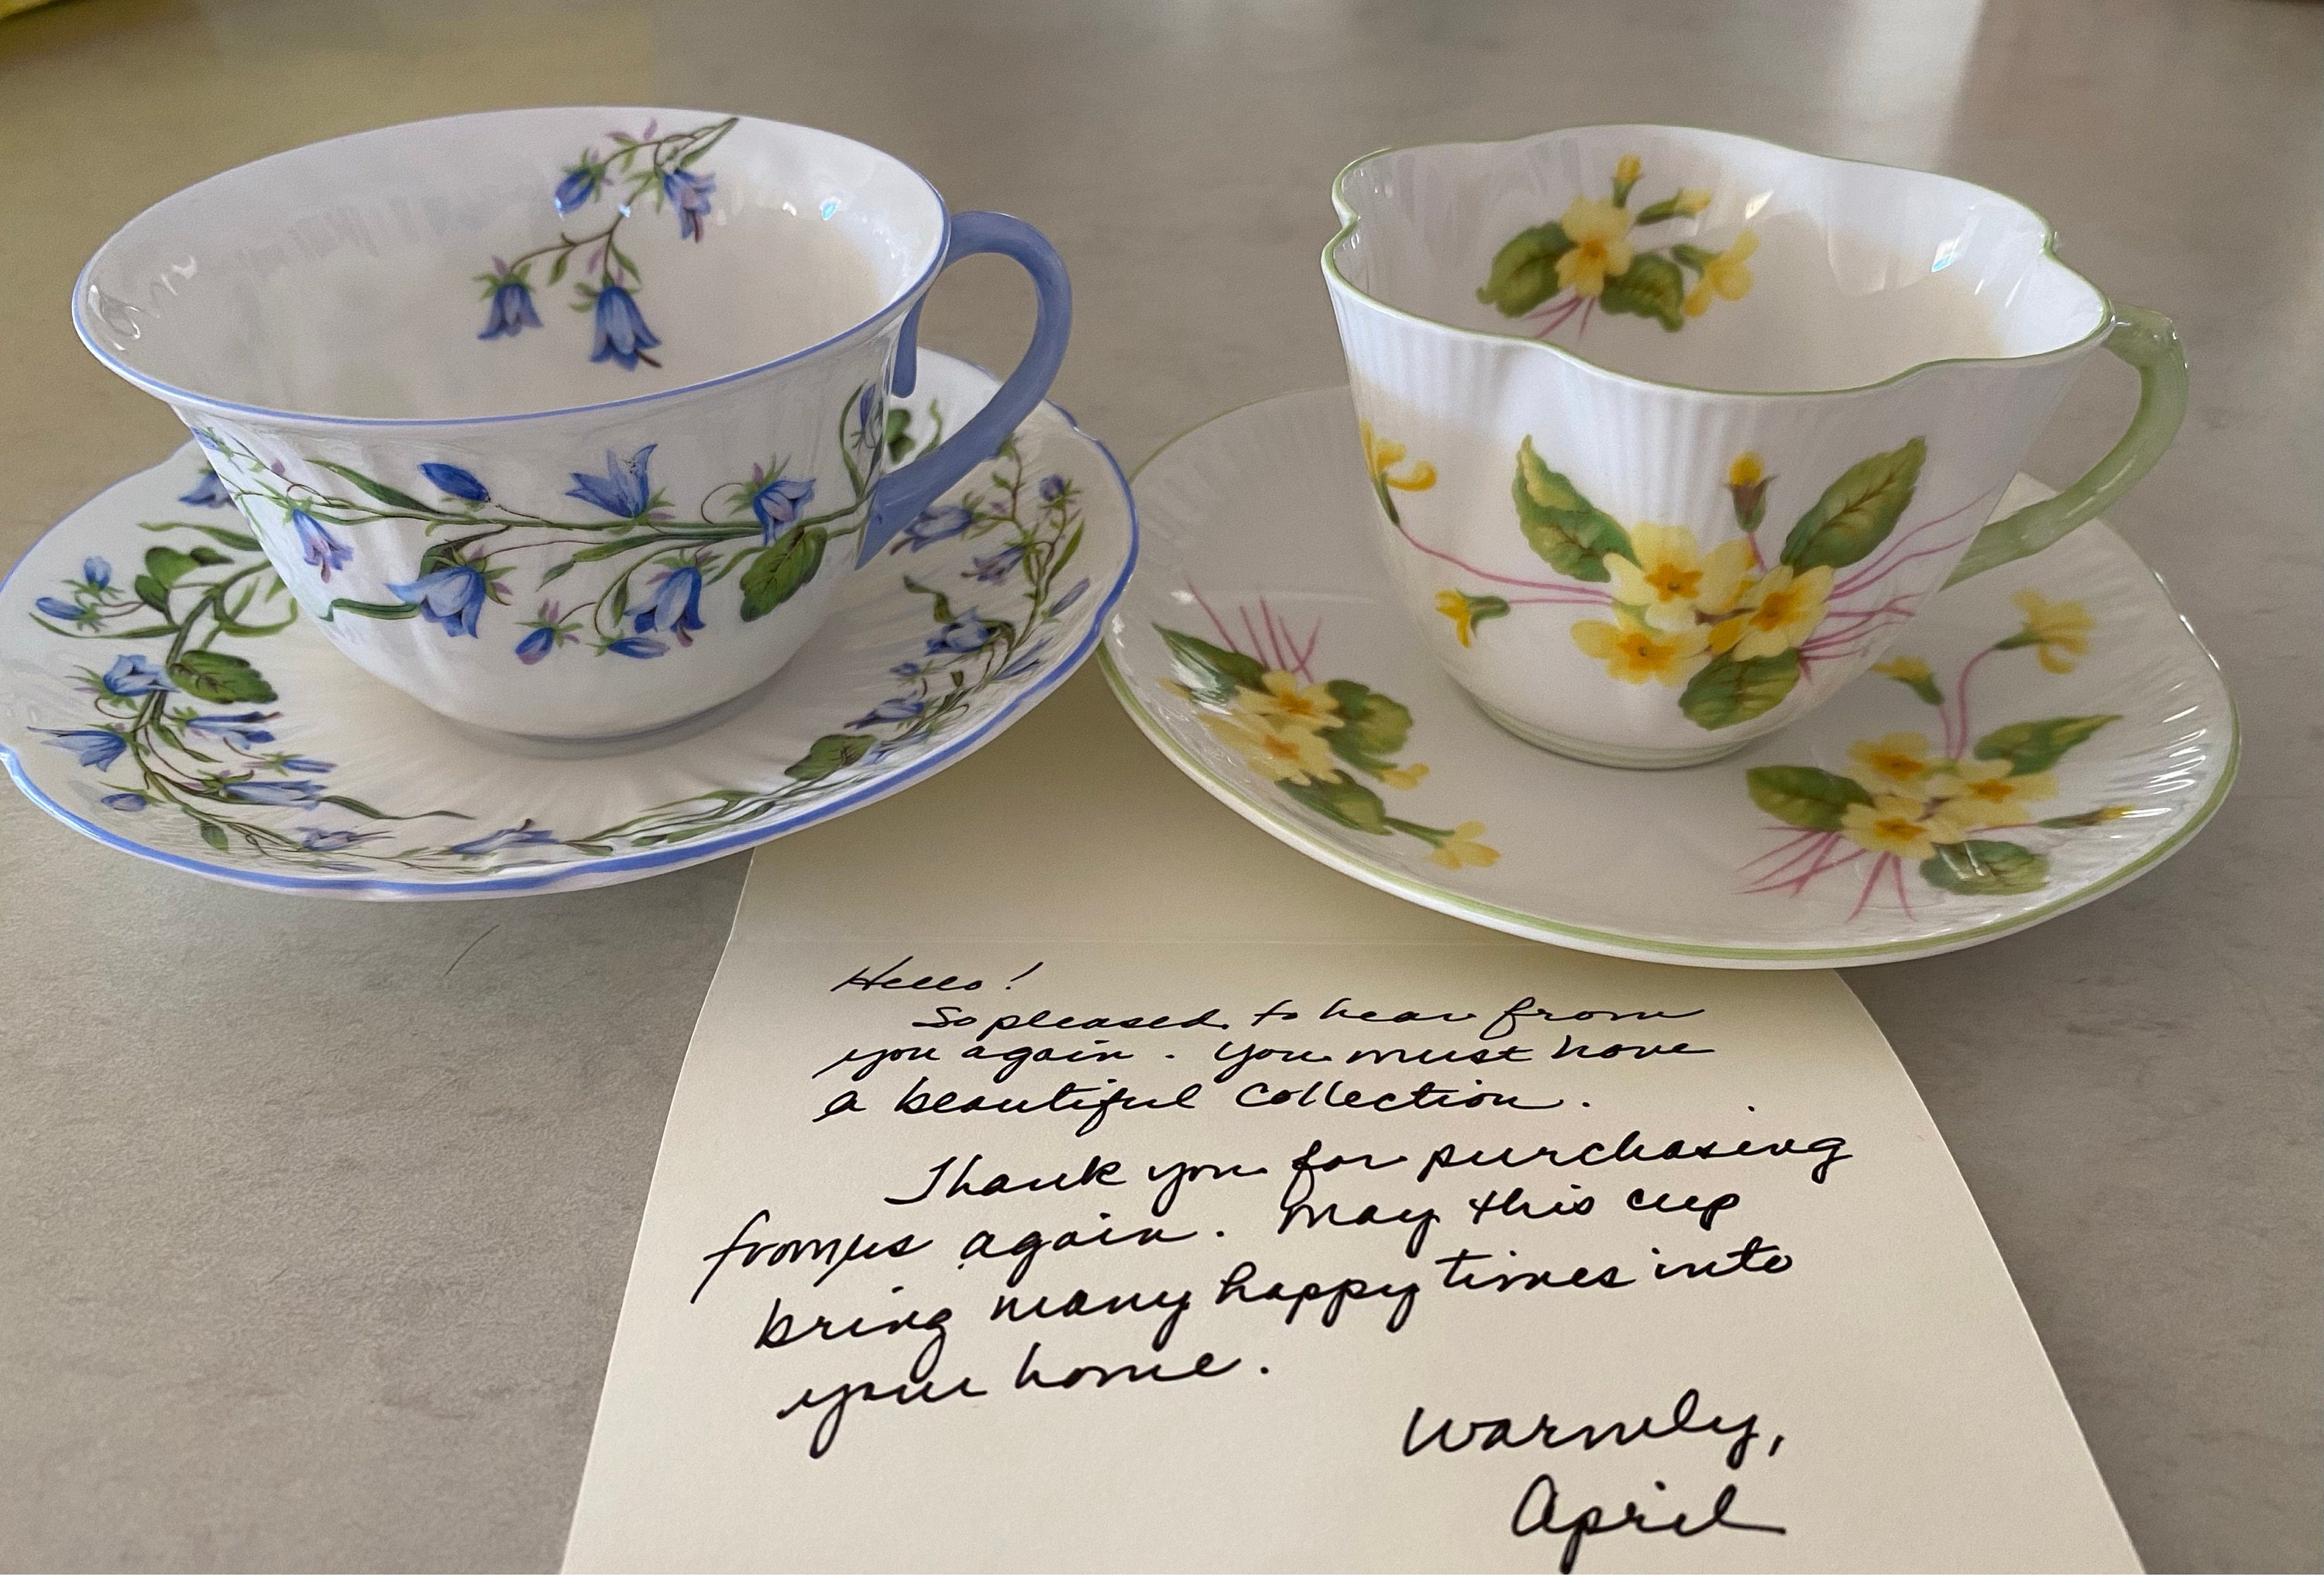 Hello!
So pleased to hear from
you again. You must have
a beautiful collection.
Thank you for purchasing
from us again. May this cup
bring many happy times into
your home.
Warmly,
April